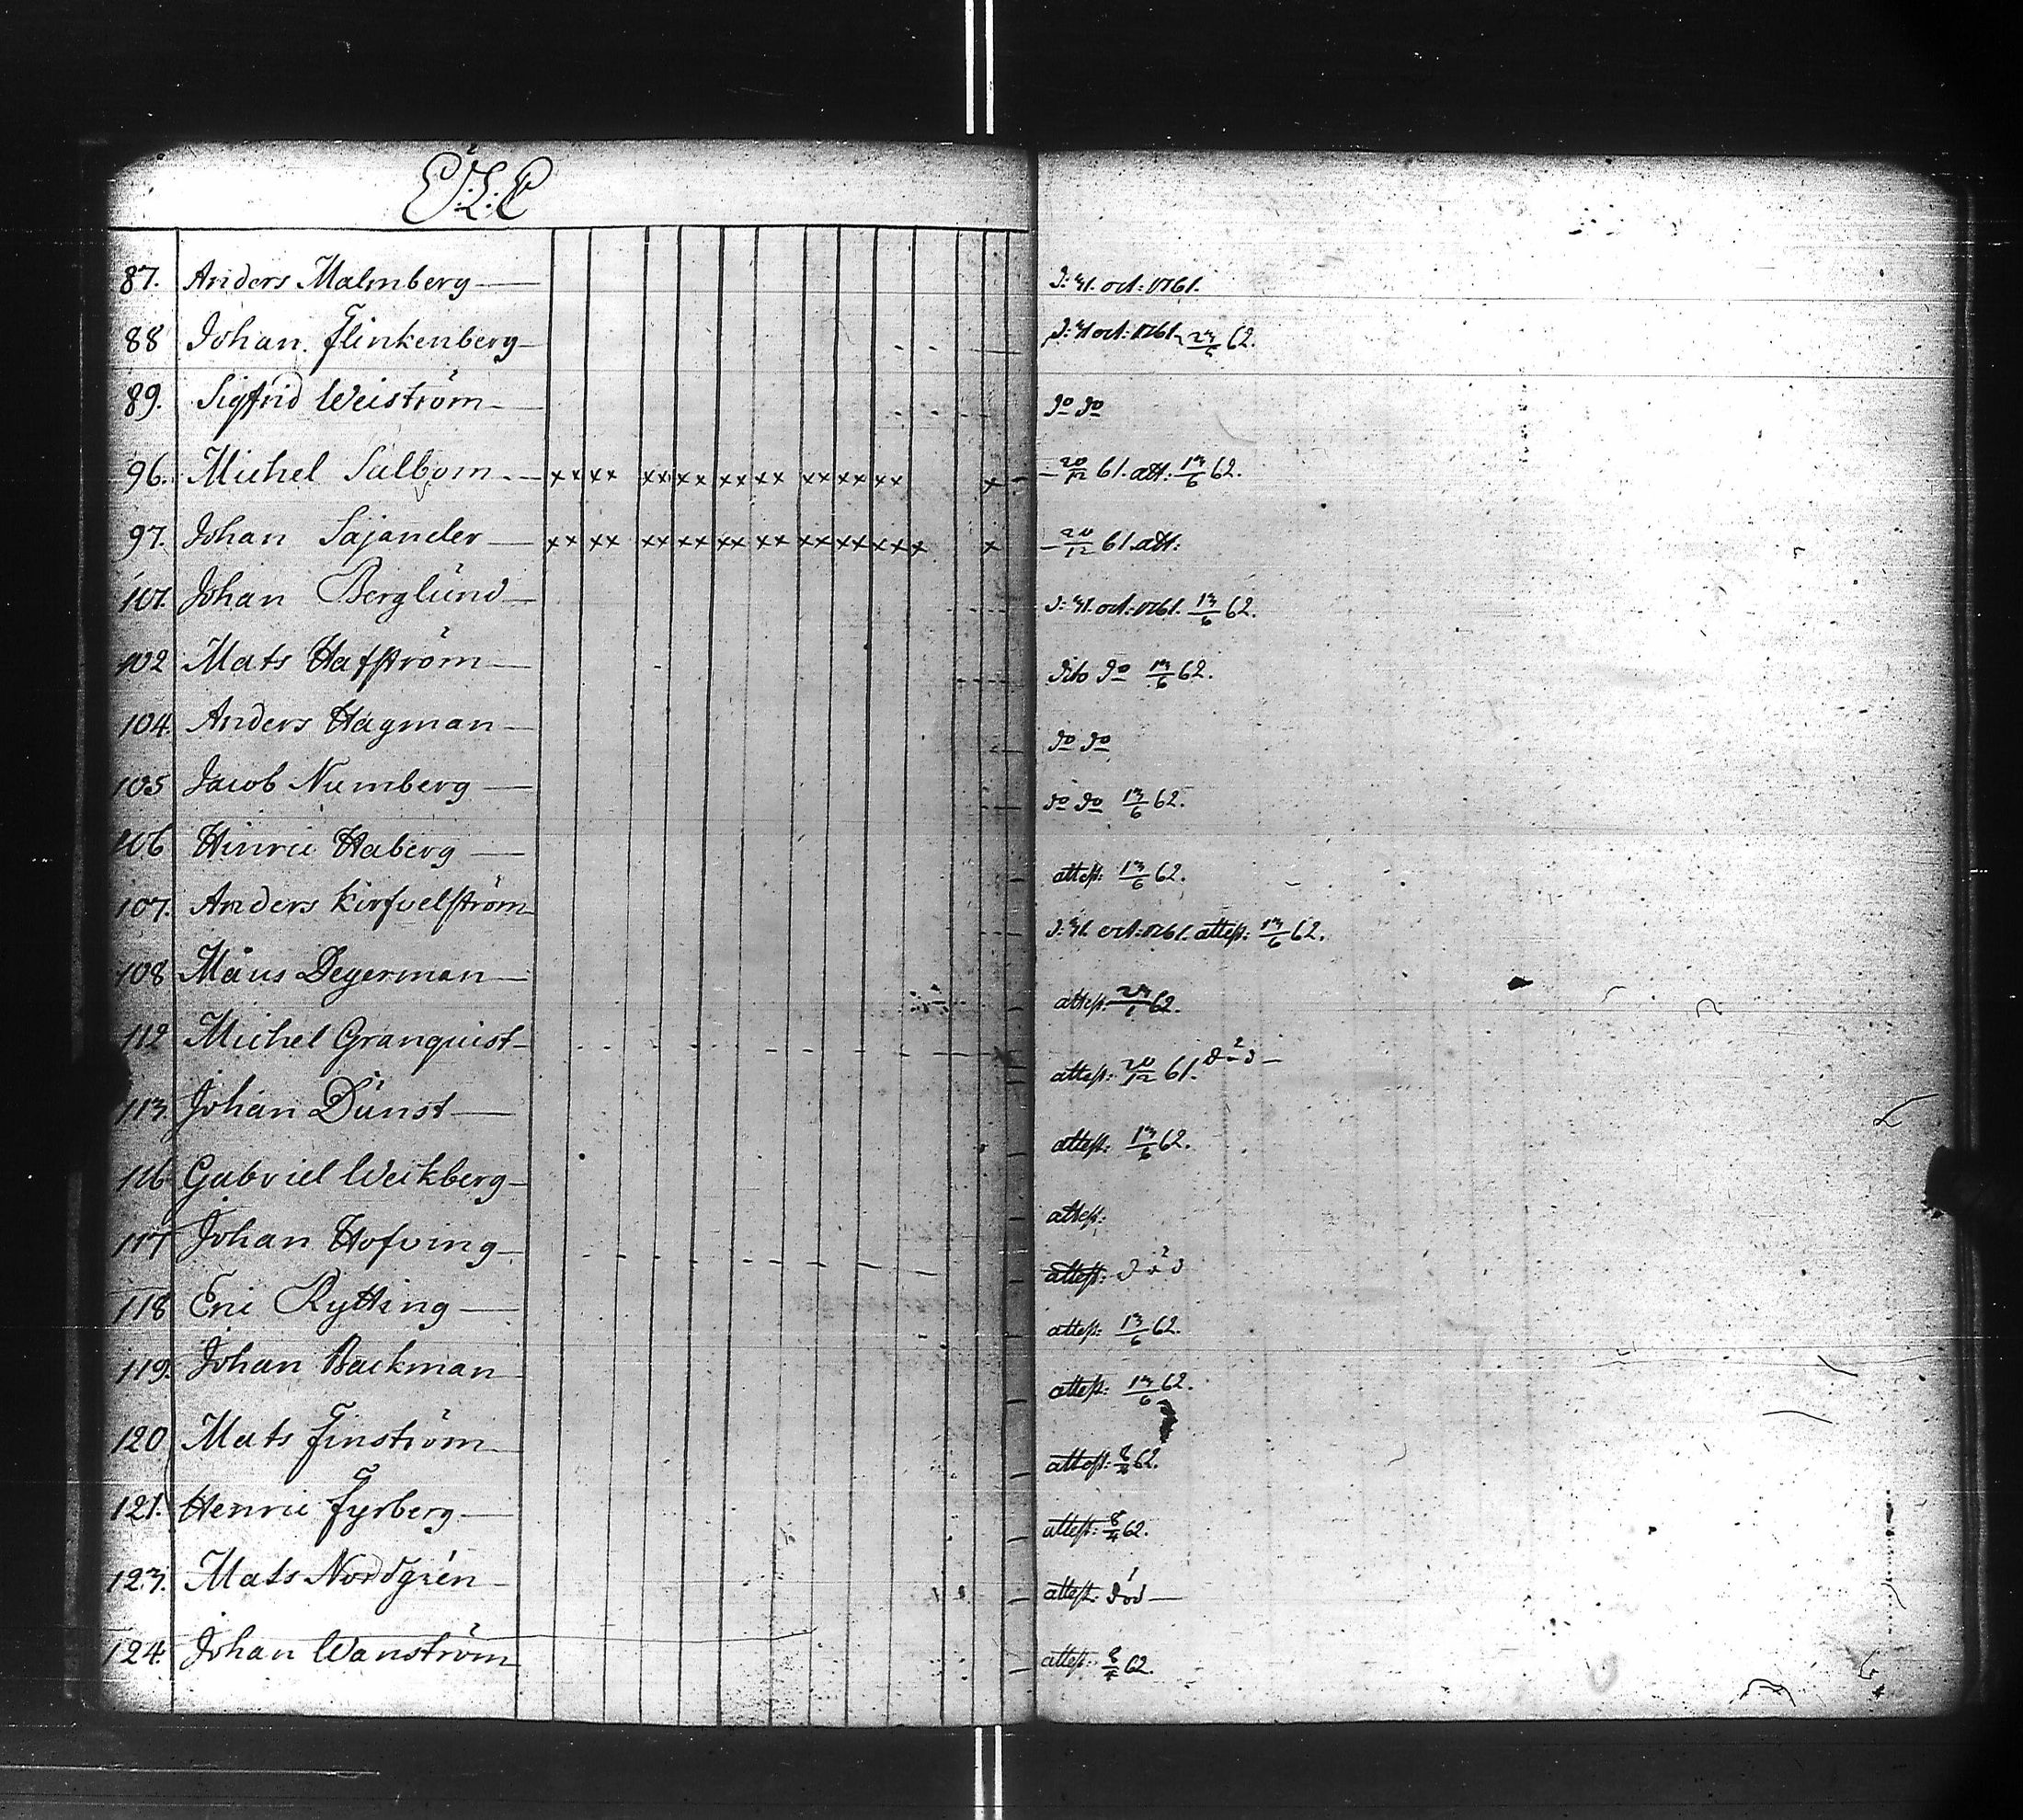 Ö.L.C
87. Anders Malmberg — d: 31. oct: 1761.
88 Johan Flinkenberg — d: 31 oct: 1761. 23/6 62.
89. Sigfrid Weiström — do do
96. Michel Salbom — xx xx xx xx xx xx xx xx xx x — 20/12 61. att: 13/6 62.
97. Johan Sajander — xx xx xx xx xx xx xx xx xx x x — 20/12 61. att:
101. Johan Berglund — d: 31. oct: 1761. 13/6 62.
102 Mats Hafström — dito do 13/6 62.
104. Anders Hagman — do do
105 Jacob Numberg — do do 13/6 62.
106 Hinric Haberg — attest: 13/6 62.
107. Anders Kirfvelström — d: 31. oct: 1761. attest: 13/6 62.
108 Måns Degerman — attest: 62.
112 Michel Granquist — attest: 20/12 61. död —
113. Johan Dunst — attest: 13/6 62.
116 Gabriel Weikberg — attest:
117 Johan Hofving — attest: död
118 Eric Rytting — attest: 13/6 62.
119. Johan Backman attest: 13/6 62.
120 Mats Finström — attest: 8/4 62.
121. Henric Fyrberg — attest: 8/4 62.
123. Mats Nordgrén — attest: död —
124. Johan Wanström attest: 8/4 62.